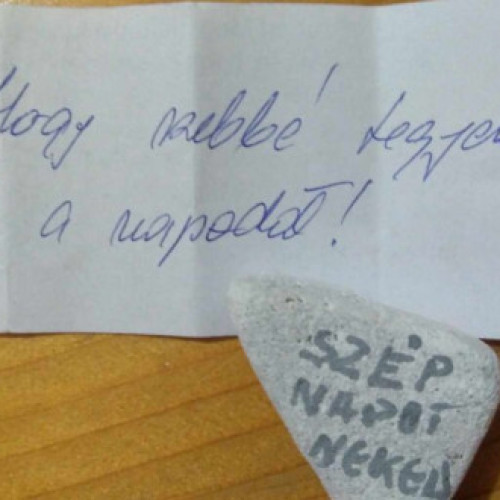 Hogy szebbé tegye
a napodat!
SZÉP
NAPOT
NEKED